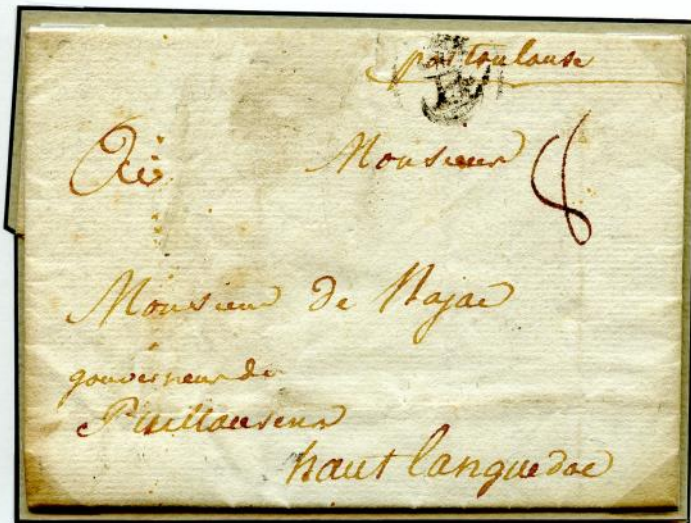 par toulouse
Monsieur 8
Monsieur de Najac
gouverneur de
Puillaurens
haut languedoc